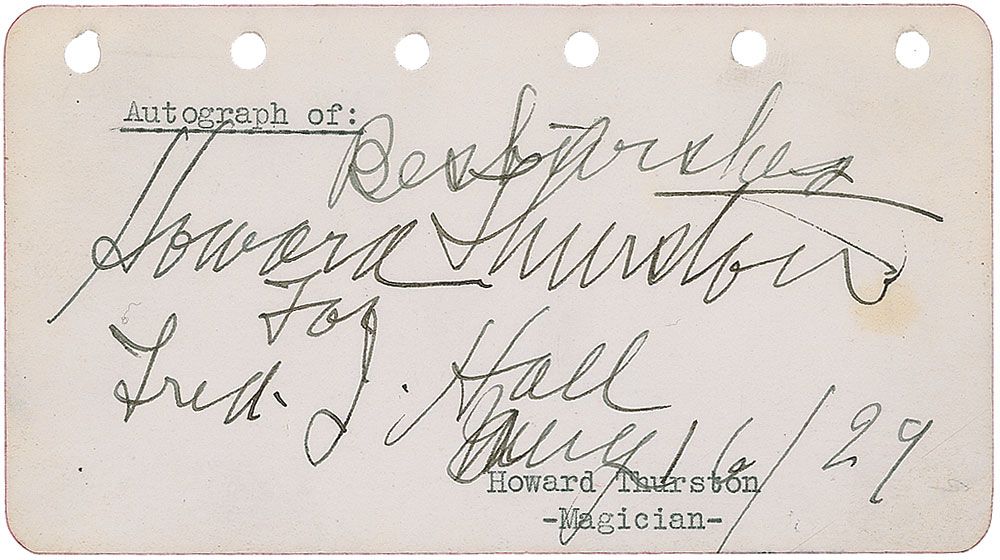 Autograph of:
Best wishes
Howard Thurston
For
Fred. J. Hall
16/29
Howard Thurston
-Magician-